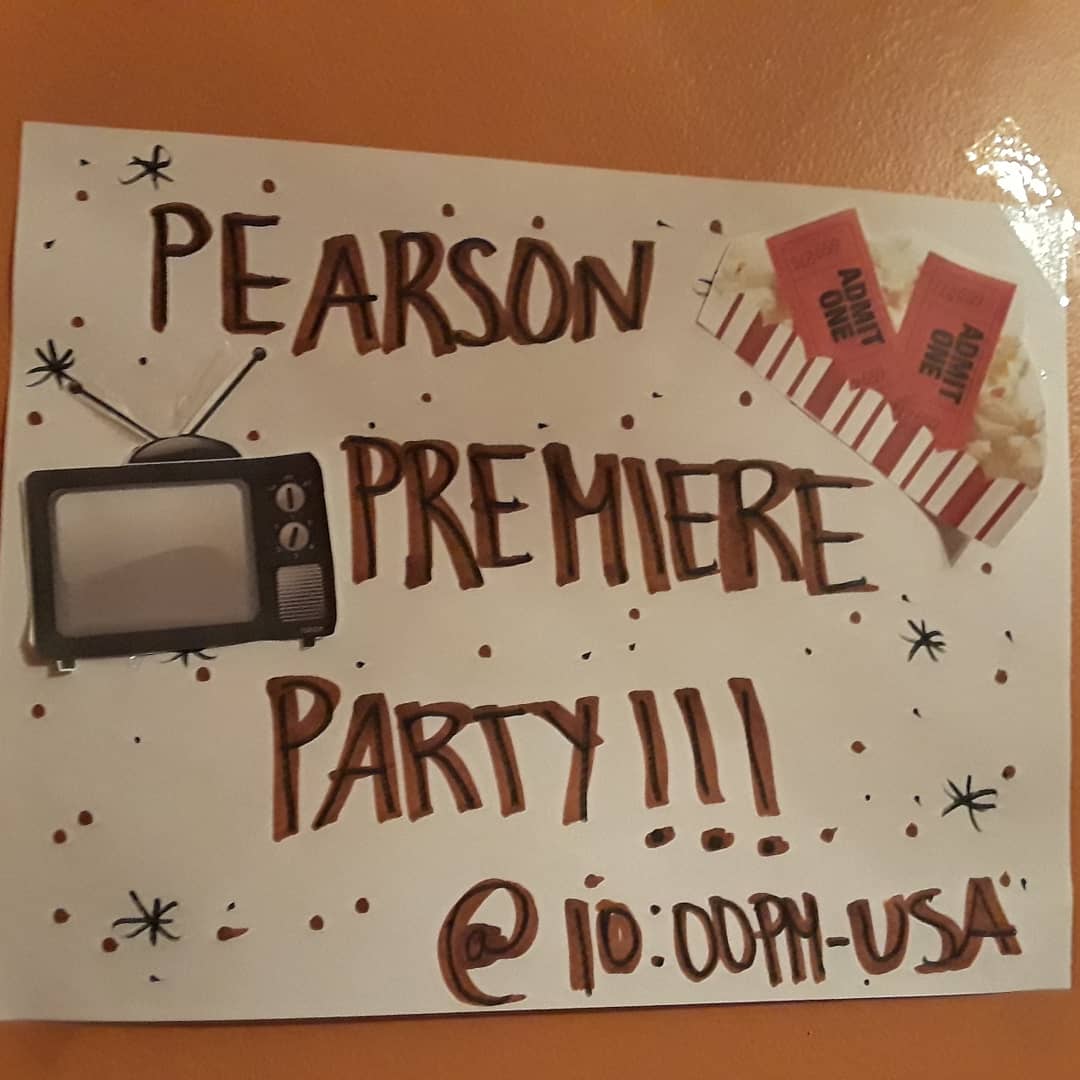 PEARSON
PREMIERE
PARTY!!!
@ 10:00PM-USA
ADMIT
ONE
ADMIT
ONE